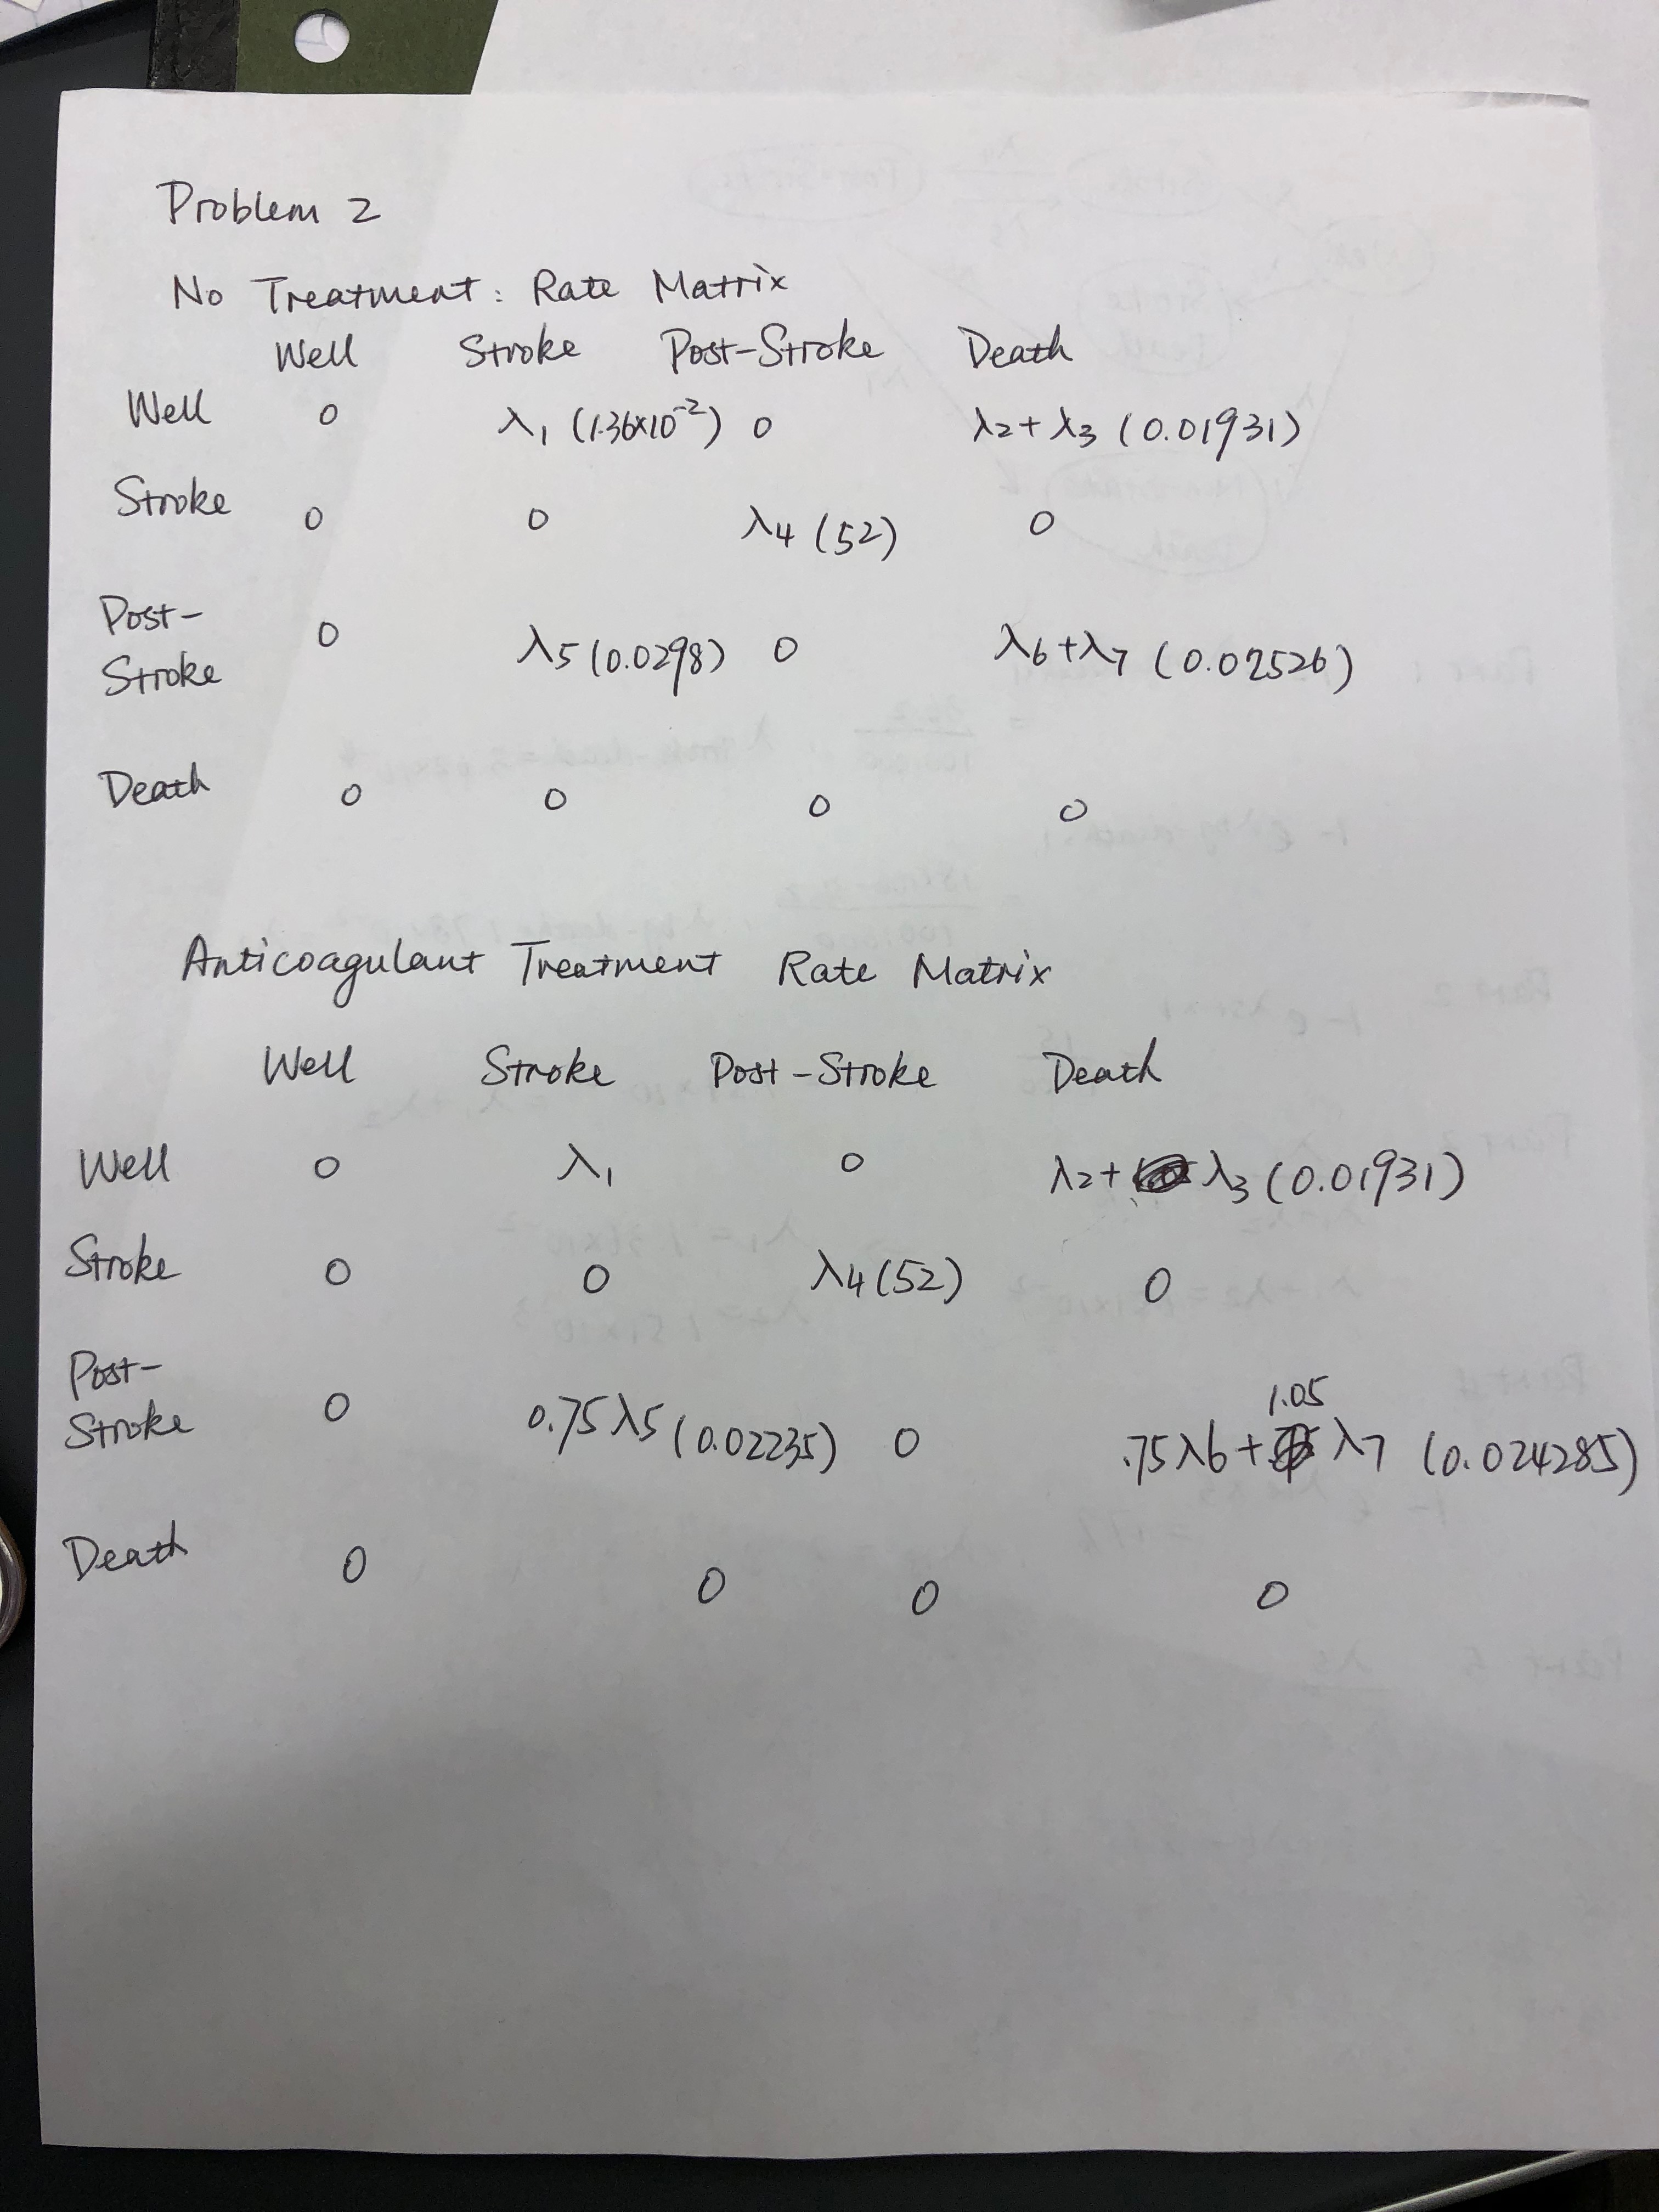 Problem 2
No Treatment: Rate Matrix
Well Stroke Post-Stroke Death
Well 0 λ1 (1.36×10^-2) 0 λ2+λ3 (0.01931)
Stroke 0 0 λ4 (52) 0
Post-
Stroke 0 λ5 (0.0298) 0 λ6+λ7 (0.02526)
Death 0 0 0 0
Anticoagulant Treatment Rate Matrix
Well Stroke Post-Stroke Death
Well 0 λ1 0 λ2+ λ3 (0.01931)
Stroke 0 0 λ4 (52) 0
Post-
Stroke 0 0.75λ5 (0.02235) 0 .75λ6+ 1.05 λ7 (0.024285)
Death 0 0 0 0